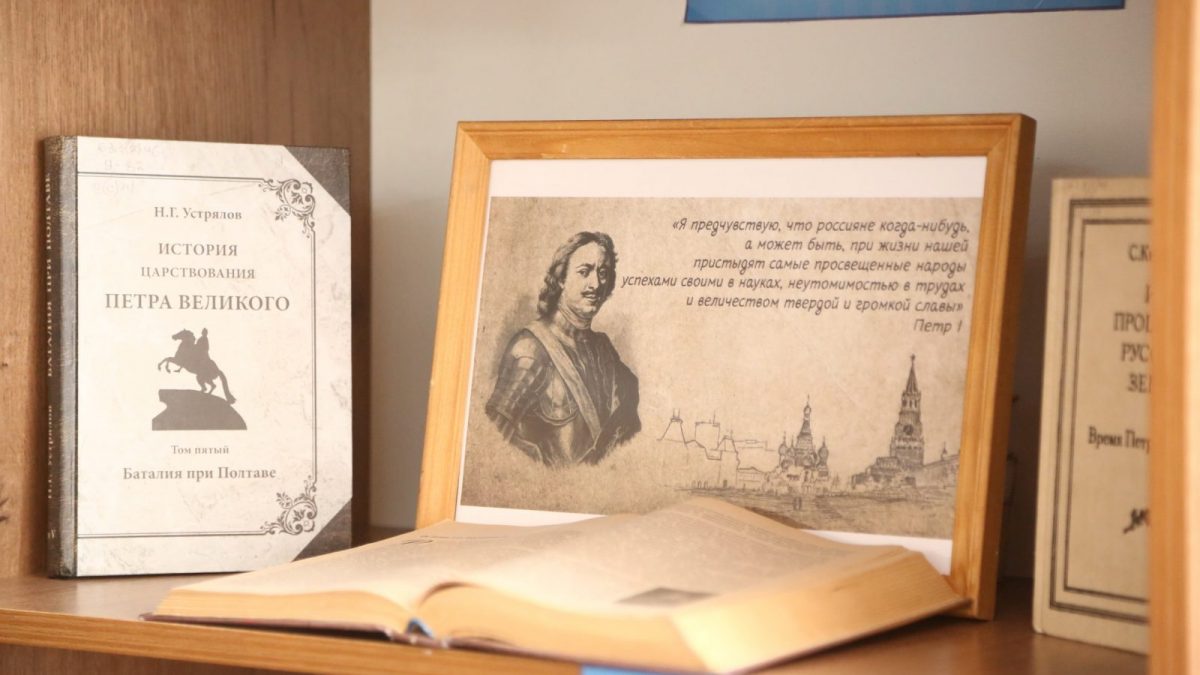 Н.Г. Устрялов
ИСТОРИЯ
ЦАРСТВОВАНИЯ
ПЕТРА ВЕЛИКОГО
Том пятый
Баталия при Полтаве
БАТАЛИЯ ПРИ ПОЛТАВЕ
Н.Г. Устрялов
«Я предчувствую, что россияне когда-нибудь,
а может быть, при жизни нашей
пристыдят самые просвещенные народы
успехами своими в науках, неутомимостью в трудах
и величеством твердой и громкой славы»
Петр I
Время